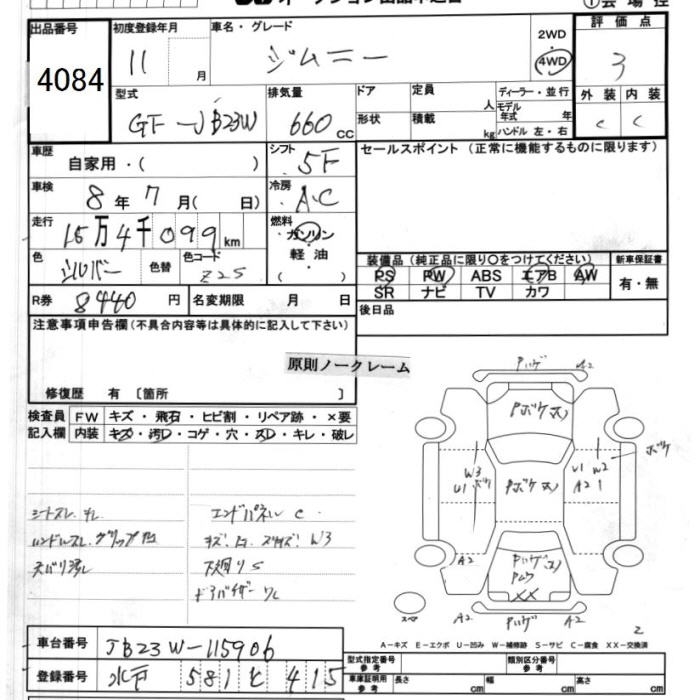 出品番号
4084
初度登録年月
11
月
車名・グレード
ジムニー
2WD
4WD
評価点
3
型式
GF-JB23W
排気量
660 CC
ドア
定員
人
形状
積載
kg
ディーラー・並行
モデル年式 年
ハンドル 左・右
外装
内装
C
C
車歴
自家用・( )
シフト
5F
セールスポイント (正常に機能するものに限ります)
車検
8年7月( 日)
冷房
AC
走行
15万4千099km
燃料
ガソリン
軽油
( )
色
シルバー
色替
色コード
Z2S
装備品 (純正品に限り○をつけてください)
PS PW ABS エアB AW
SR ナビ TV カワ
新車保証書
有・無
R券
8440円
名変期限 月 日
後日品
注意事項申告欄(不具合内容等は具体的に記入して下さい)
原則ノークレーム
修復歴 有〔箇所 〕
検査員記入欄
FW キズ・飛石・ヒビ割・リペア跡・×要
内装 キズ・汚D・コゲ・穴・スD・キレ・破レ
シートスレ. チレ
エンドパネル C
ハンドルスレ. グリップ
W3
下廻りS
ドアバイザー ワレ
Pハゲ
A2
Pボケ
W3
U1
Pボケ
U1
W2
A2
1
ボケ
A2
Pハゲ
XX
A2
A2
Pハゲ
A2
スペア
2
A-キズ E-エクボ U-凹み W-補修跡 S-サビ C-腐食 XX-交換済
車台番号
JB23W-115906
登録番号
水戸 581 ヒ 415
型式指定番号 参考
類別区分番号 参考
車庫証明用 参考
長さ cm
幅 cm
高さ cm